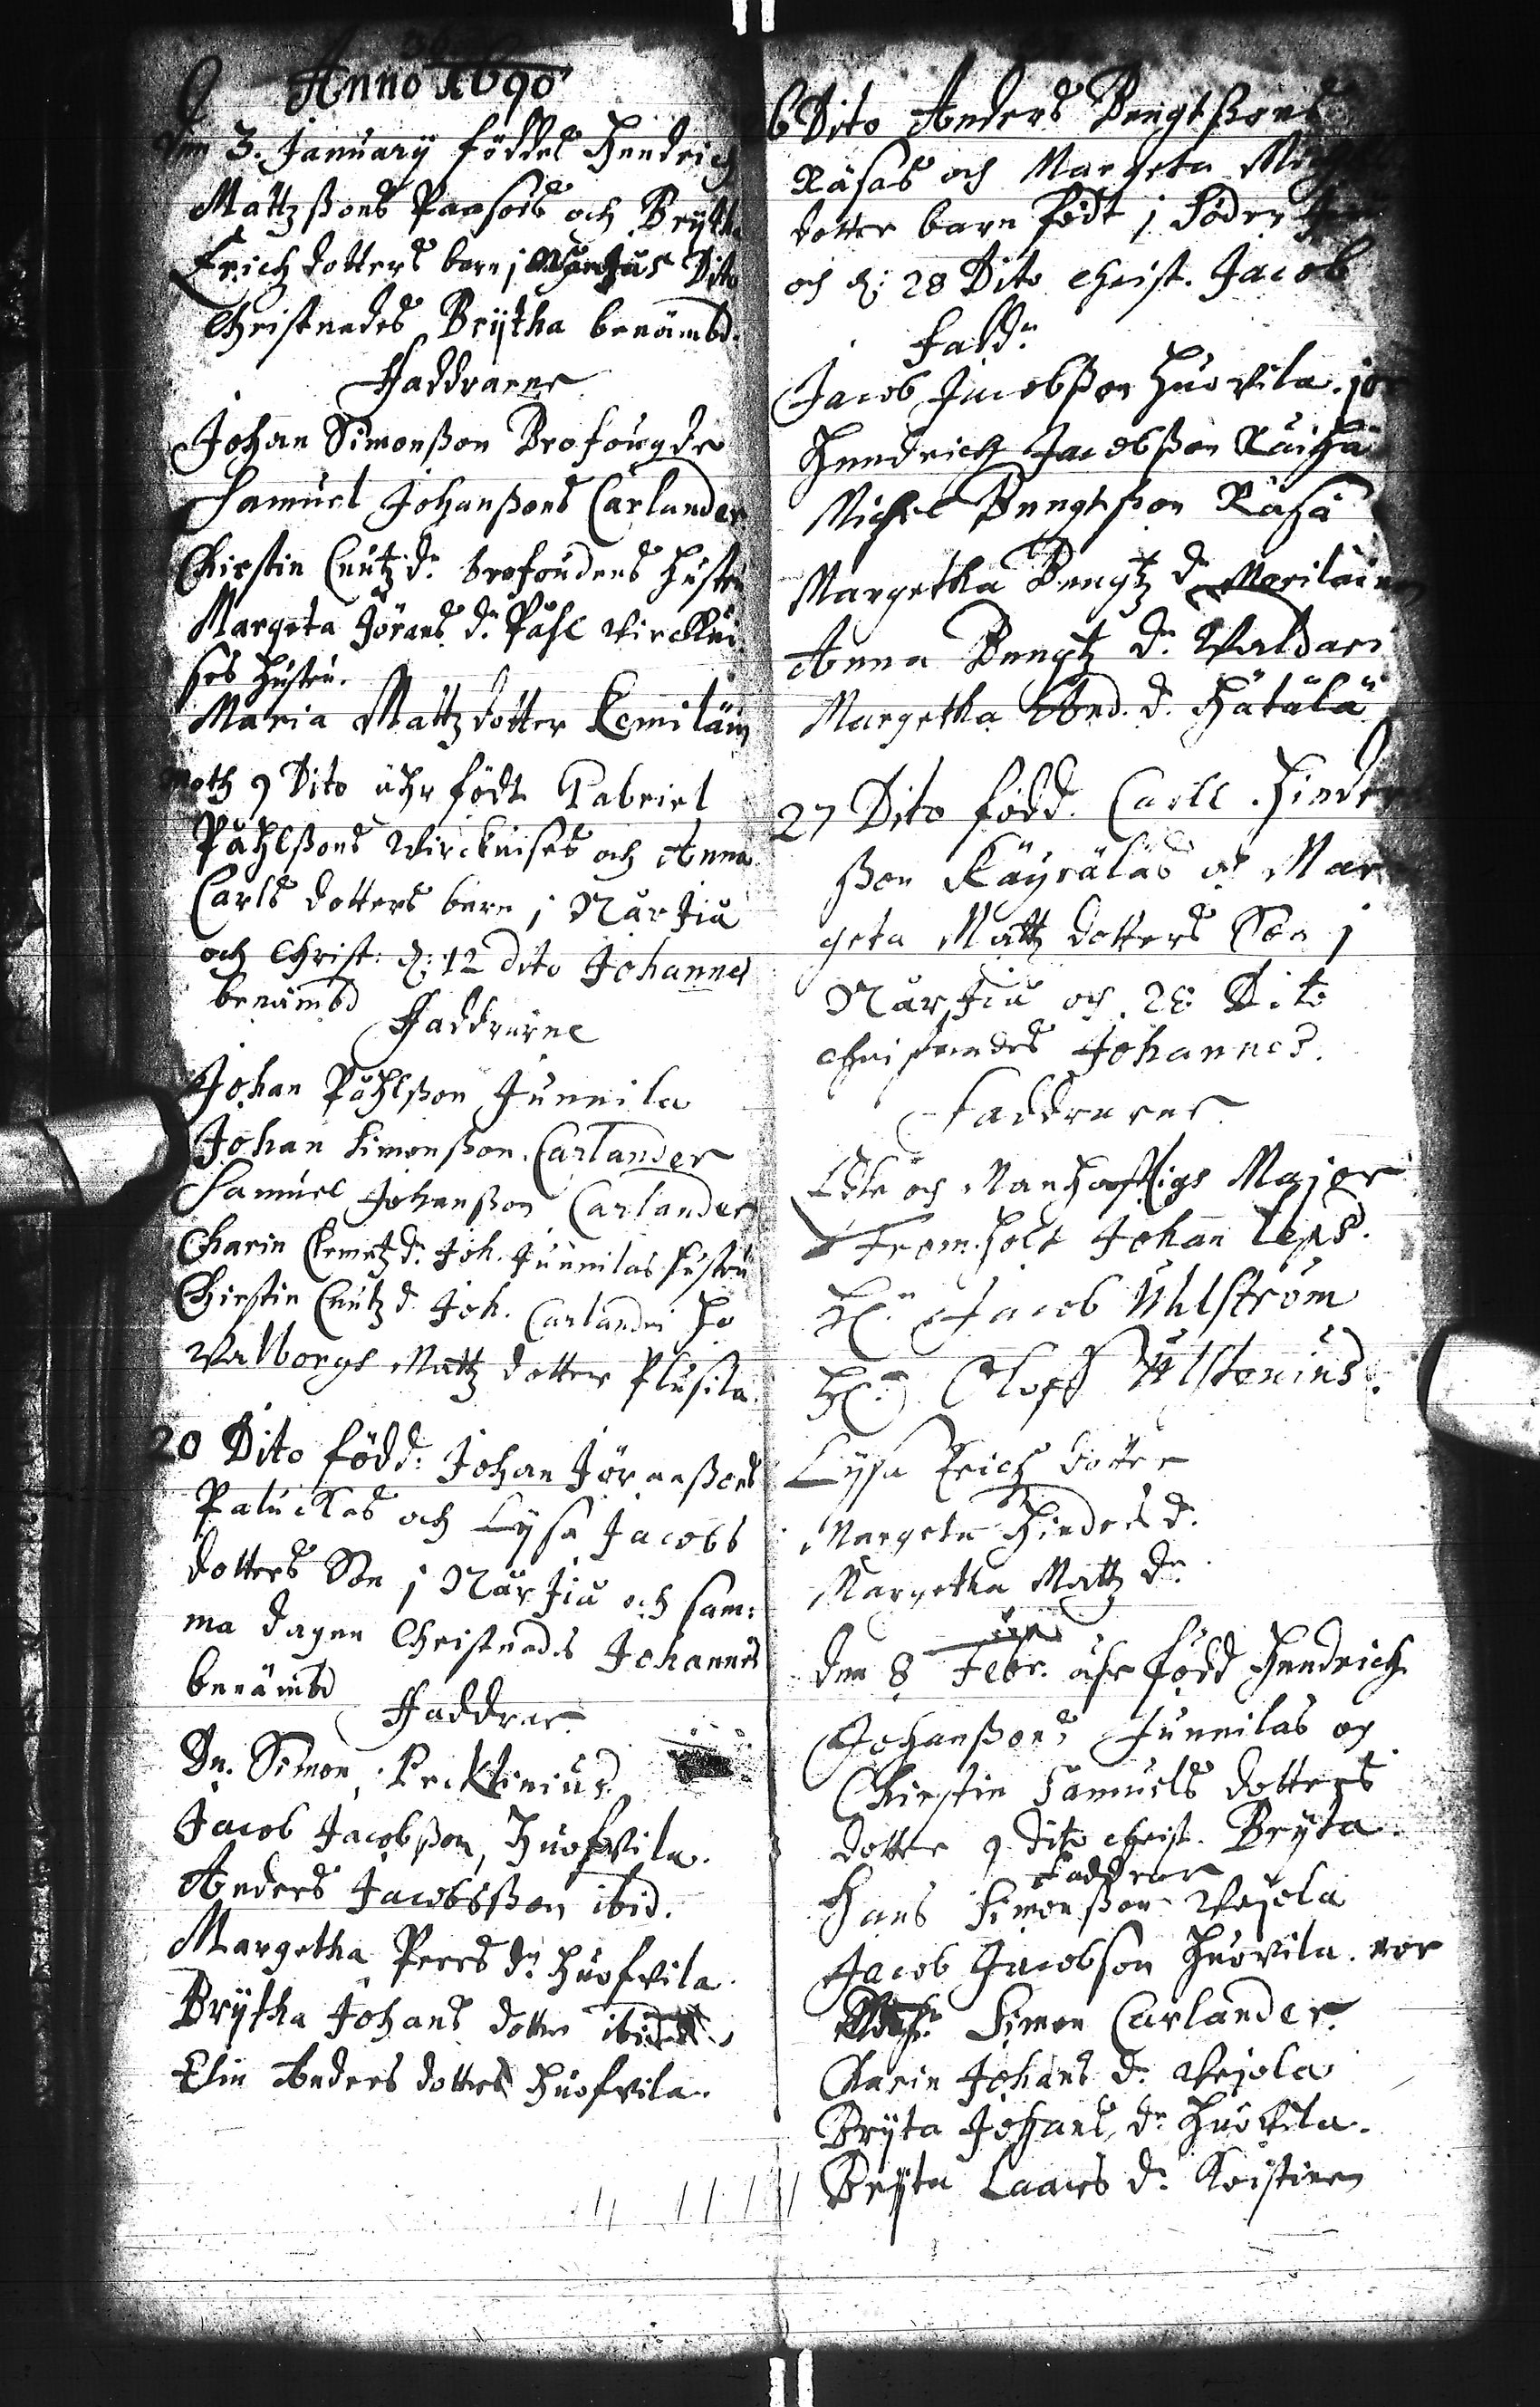 Anno 1690
den 3. January föddes Hendrich
Mattzßons Paasois och Brytha
Erich dotters barn j Dito
Christnades Brÿtha benämbd.
Faddrarne
Johan Simonßon Brofougde
Samuel Johanßons Carlander
Chirstin Cnutz dr. brofoudens hustru
Margeta Jörans dr. Påhl Wirckui
ses hustru.
Maria Mattz dotter Lemiläin
9 Dito ähr födt Gabriel
Påhlßons Wirckuises och Anna
Carls dotters barn j Närjiu
och Christ: d: 12 dito Johannes
benämbd
Faddrarne
Johan Påhlßon Junnila
Johan Simonßon Carlander
Samuel Johanßon Carlander
Charin Clemetz dr. Joh. Junnilas hustru
Chirstin Cnutz d. Joh. Carlanders ho
Walborgs Mattz dotter Plusila.
20 Dito född: Johan Jöranßons
Paluckas och Lysa Jacobs
dotters Son j Närjiu och sam:
ma dagen Christnads Johannes
benämbd
Faddrar
Dn. Simon
Jacob Jacobßon, Huofvila.
Anders Jacobsßon ibid.
Margetha Peers dr Huofvila.
Brytha Johans dotter ibid
Elin Anders dotter Huofvila.
6 Dito Anders Bengtßons
Räsäs och Margeta
dotter barn födt j Söder
och d: 28 Dito christ. Jacob
Fadd:
Jacob Jacobßon Huovila. jor
Hendrich Jacobßon Raiha
Michel Bengtßon Räsä
Margetha Bengtz dr Meriläinen
Anna Bengtz dr. Valdari
Margetha And. d. Hätälä
27 Dito född. Carll Hindr
ßon Käyräläs och Mar
geta Mattz dotters Son j
Närjiu och 28 Dito
christnades Johannes.
Faddrarne
Edle och Manhafftige Major
Fromholt Johan Leps.
Hr. Jacob Uhlström
Hr. Oloff Ulstenius.
Lysa Erich dotter
Margeta Hindrs d.
Margetha Mattz dr.
den 8 Febr. ähr född Hendrich
Johanßons Junnilas och
Chirstin Samuels dotters
dotter 9 dito christ. Bryta.
Faddrar
Hans Simonßon Vesola
Jacob Jacobson Huovila.
Simon Carlander.
Karin Johans dr. Vesola
Bryta Johans dr Huovila.
Bryta Laars dr. Koistinen